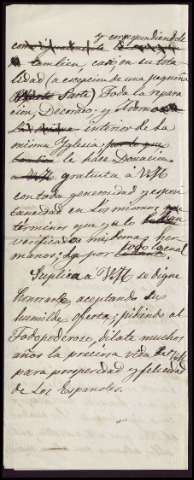 y correspondiendole
tambien, casi en su tota
lidad (a escepcion de una pequeña
Parte) Toda la repara
cion, Decorado, y
interior de la
misma Yglesia
le hace Donacion
gratuita a VM
con toda generosidad y espon
taneidad en los mismos
terminos que ya lo
verificado mis her
manos; por todo lo cual
Suplica a VM se digne
honrarle, aceptando su
humilde oferta; pidiendo al
Todopoderoso, dilate muchos
años la preciosa vida de VM
para prosperidad y felicidad
de Los Españoles.